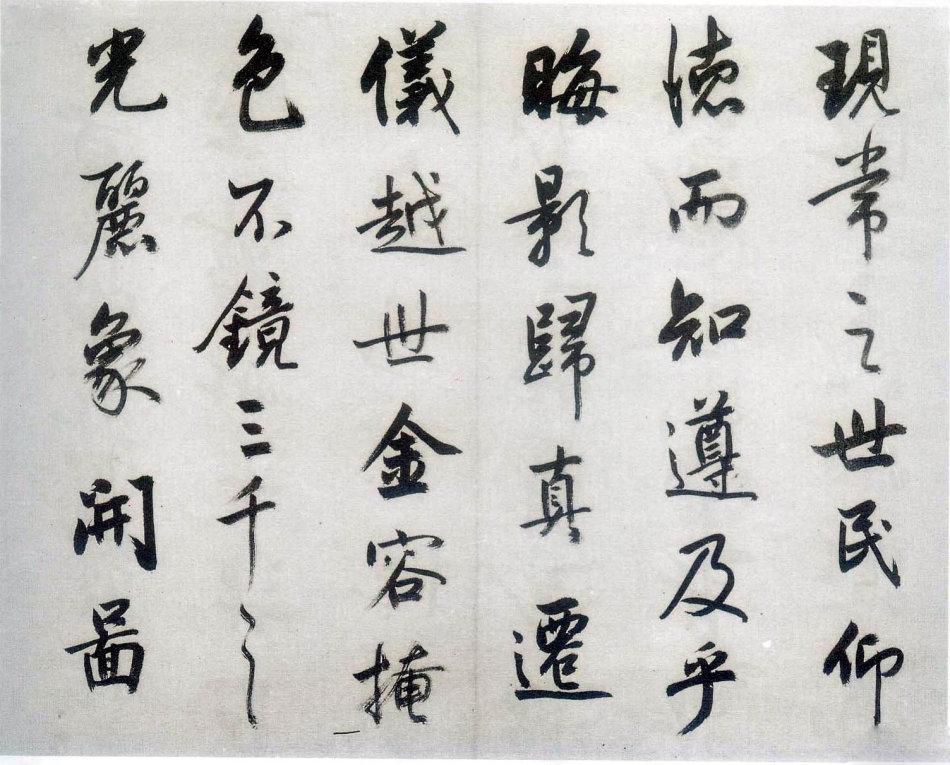 現常之世民仰
徳而知遵及乎
晦影歸真遷
儀越世金容掩
色不鏡三千之
光麗象開圖